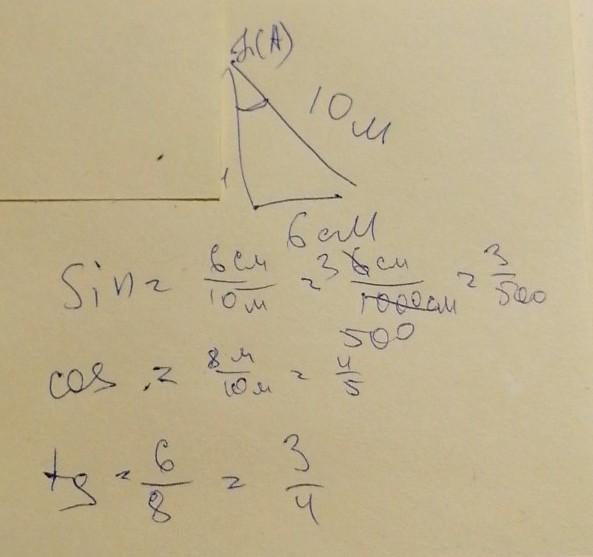 10м
6см
Sin = 6см/10м = 3 6см/1000см 500 = 3/500
cos = 8м/10м = 4/5
tg = 6/8 = 3/4